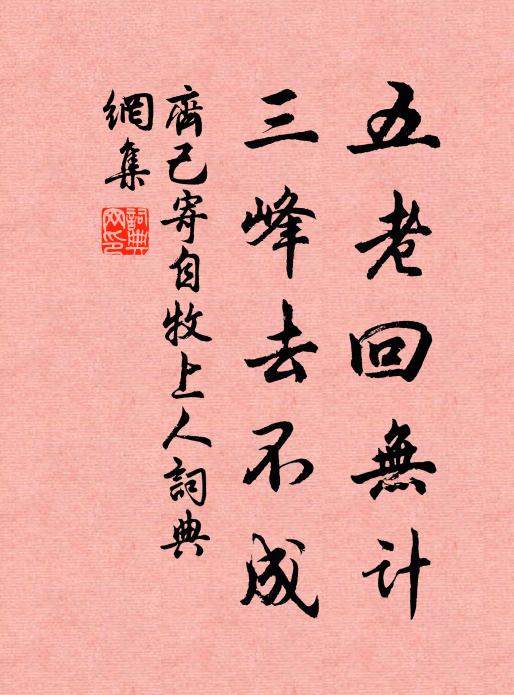 五老回無计
三峰去不成
齊己寄自牧上人詞典
網集
詞典
网印